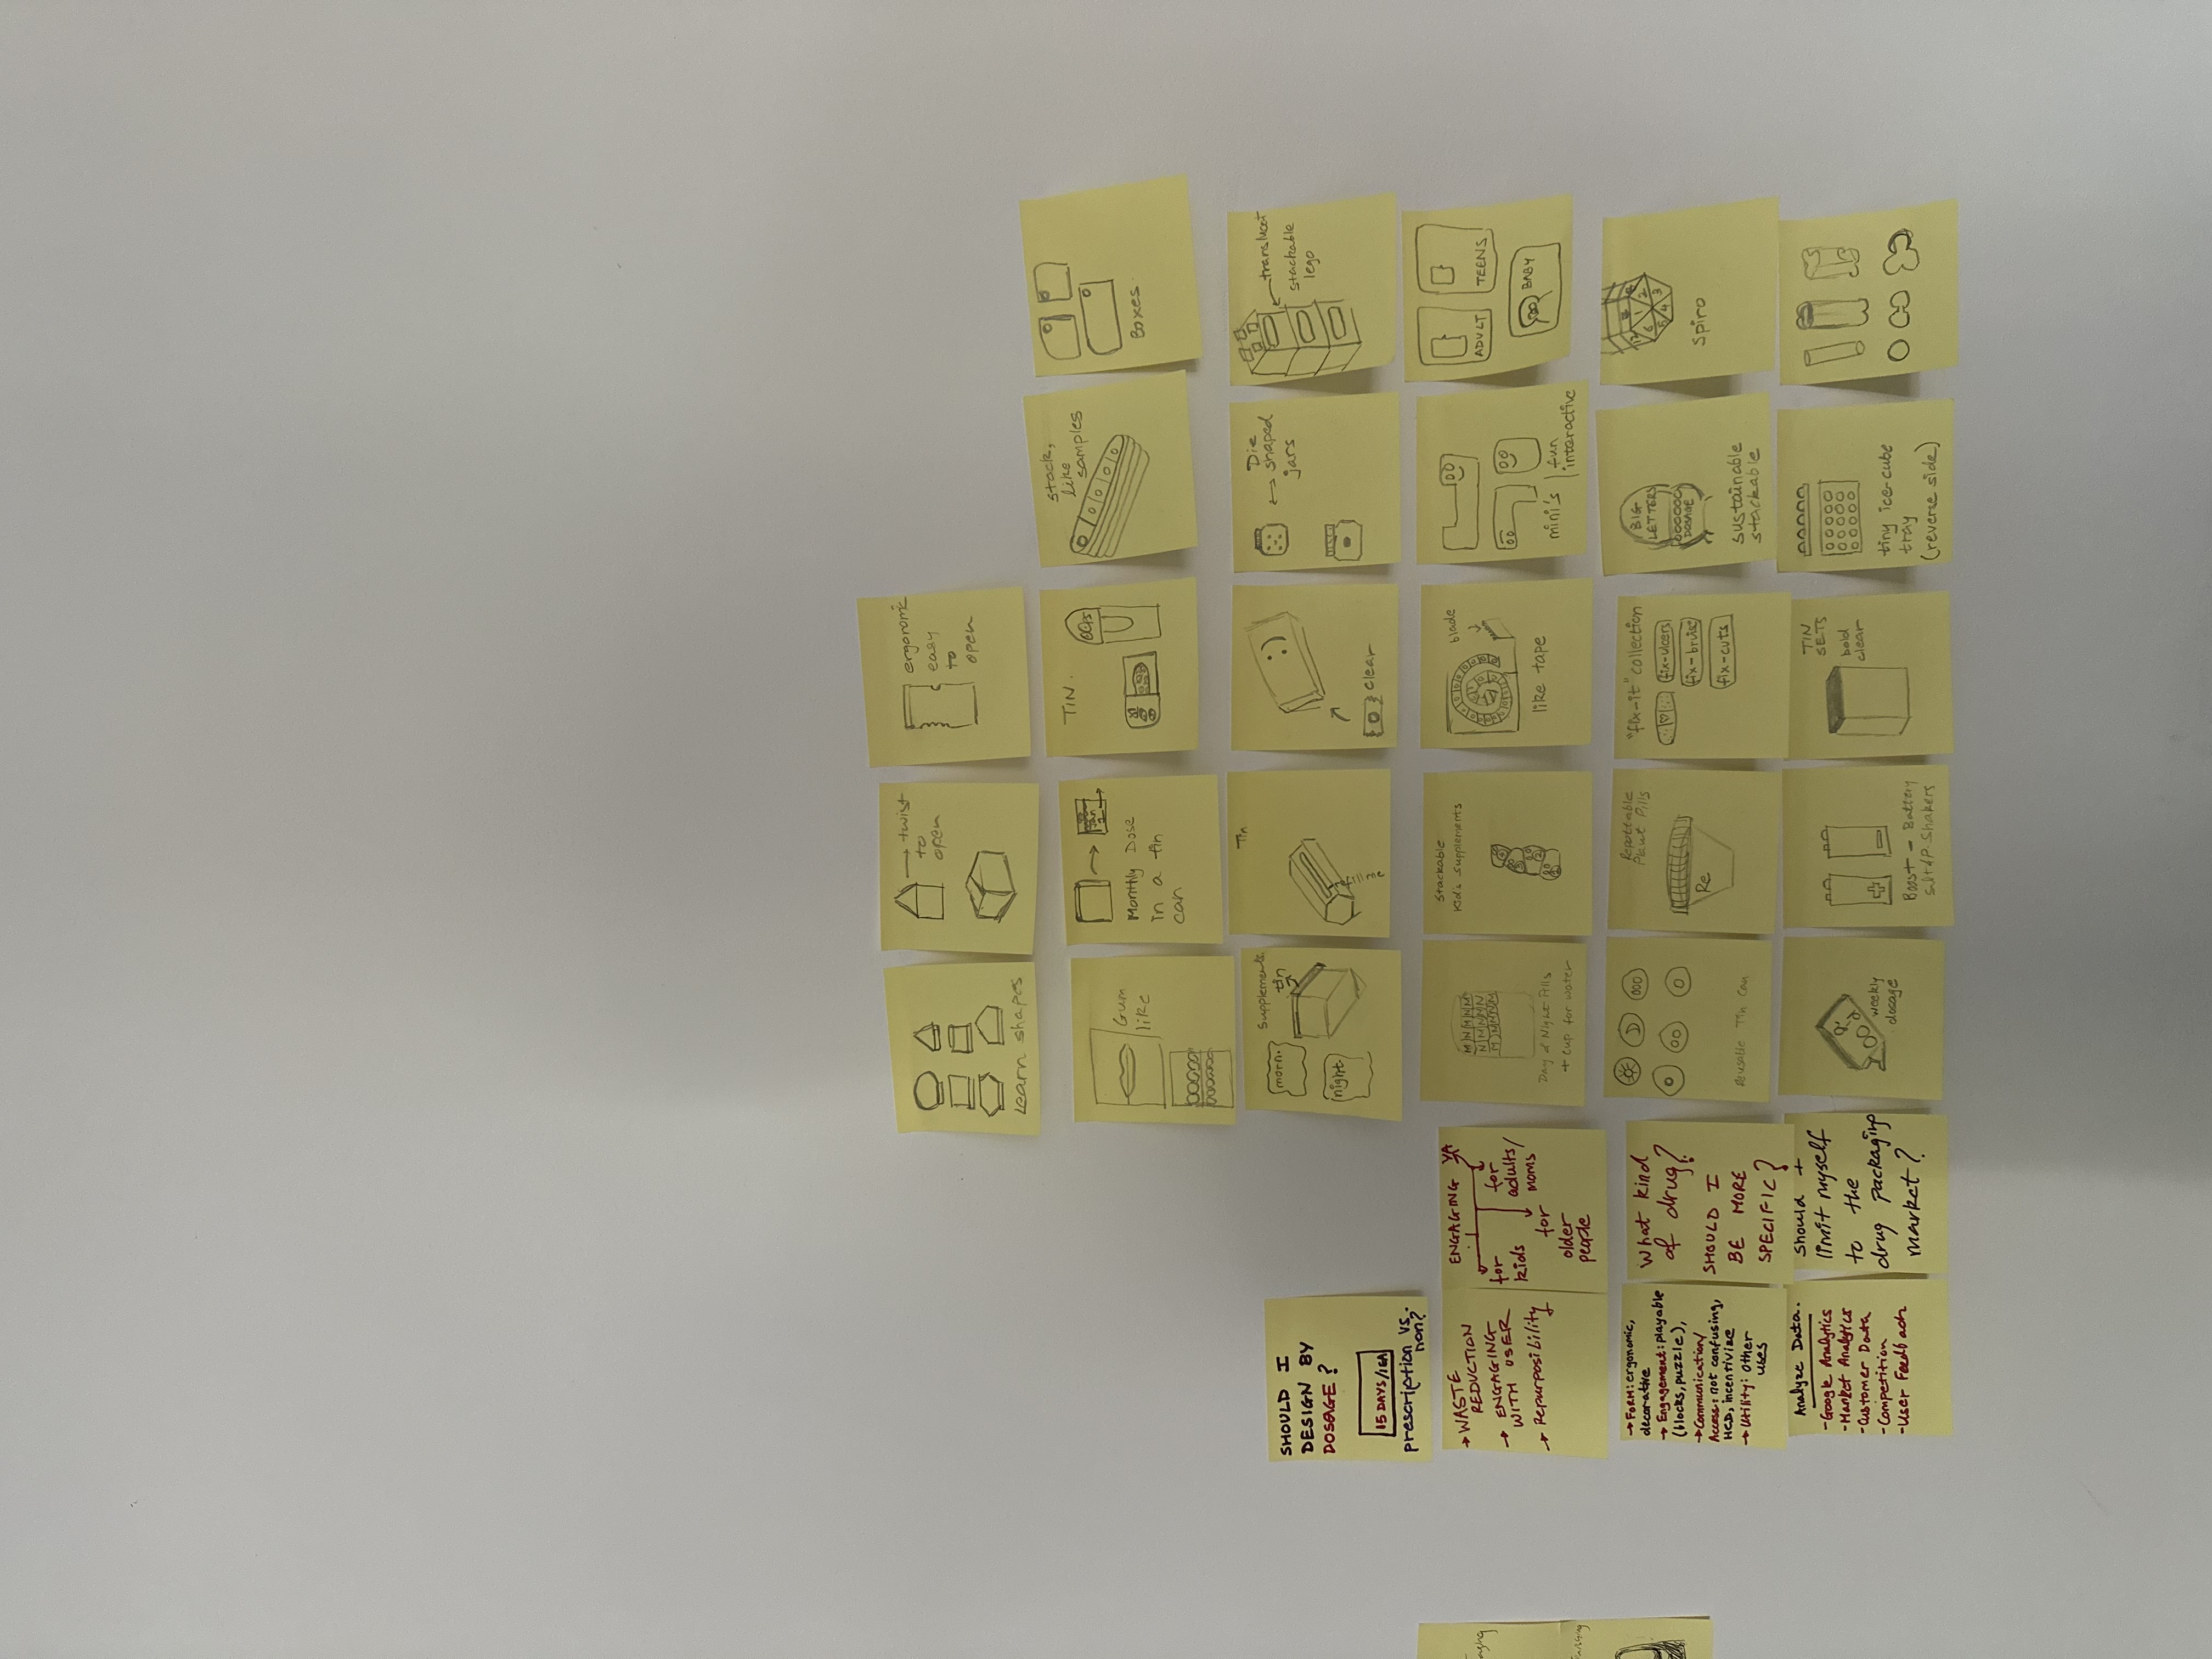 Learn shapes
twist
to
open
ergonomic
easy
to
open
Gum
like
Monthly Dose
in a tin
can
TIN.
stack,
like
samples
Boxes
SHOULD I
DESIGN BY
DOSAGE?
15 DAYS/1EA
prescription vs.
non?
supplements.
tin
morn.
night.
Tin
refill me
clear
Die
shaped
jars
stackable
lego
→ WASTE
REDUCTION
→ ENGAGING
WITH USER
→ Repurposibility
ENGAGING YA
for
kids
for
adults/
moms
for
older
people
M N M N M
Day & Night Pills
+ cup for water
Stackable
Kid's Supplements
blade
like tape
mini's
fun
interactive
ADULT
TEENS
BABY
→ FORM: ergonomic,
decorative
→ Engagement: playable
(blocks, puzzle),
→ Communication/
Access: not confusing,
HCD, incentivize
→ Utility: other
uses
What kind
of drug?
SHOULD I
BE MORE
SPECIFIC?
Reusable Tin Can
Repottable
Plant Pills
Re
"fix-it" collection
fix-ulcers
fix-bruise
fix-cuts
BIG
LETTERS
DOSAGE
sustainable
stackable
12
1
2
3
4
5
6
Spiro
Analyze Data.
- Google Analytics
- Market Analytics
- Customer Data
- Competition
- User Feedback
Should I
limit myself
to the
drug packaging
market?
weekly
dosage
+
–
Boost – Battery
Salt & P. Shakers
TIN
SETS
bold
clear
tiny ice-cube
tray
(reverse side)